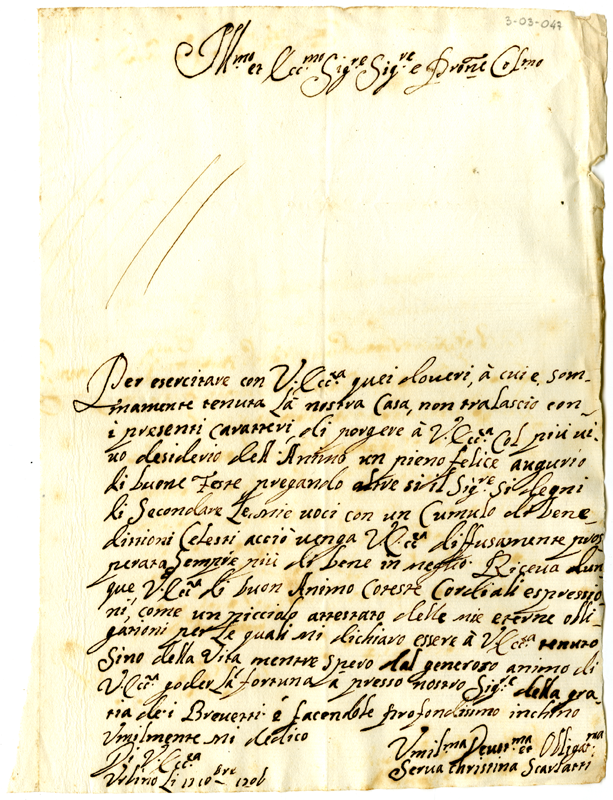 3-03-047
Ill.mo et Ecc.mo Sig.re Sig.re e Prõne Col.mo
Per esercitare con V: Ecc.za quei doveri, à cui e, som-
mamente tenuta La nostra Casa, non tralascio con
i presenti caratteri, di porgere à V: Ecc.za Col più vi-
uo desiderio dell'Animo un pieno felice augurio
di buone Feste pregando altre si il Sig.re Si degni
di Secondare Le mie voci con un Cumulo di bene-
ditioni Celesti acciò venga V: Ecc.za diffusamente pros
perata Sempre più di bene in meglio. Riceva dun
que V: Ecc.za di buon Animo Coteste Cordiali espressio
ni, come un picciolo attestato delle mie eterne obli-
gationi per Le quali mi dichiaro essere à V: Ecc.za tenuto
Sino della Vita mentre spero dal generoso animo di
V: Ecc.za goder La fortuna à presso nostro Sig.re della gra-
tia dei Brevetti è facendole profondissimo inchino
Vmilmente mi dedico
Di V: Ecc.za
Vrbino Li 17 10bre 1706
Vmil.ma Deuot.ma et Obligat.ma
Serua Christina Scarlatti